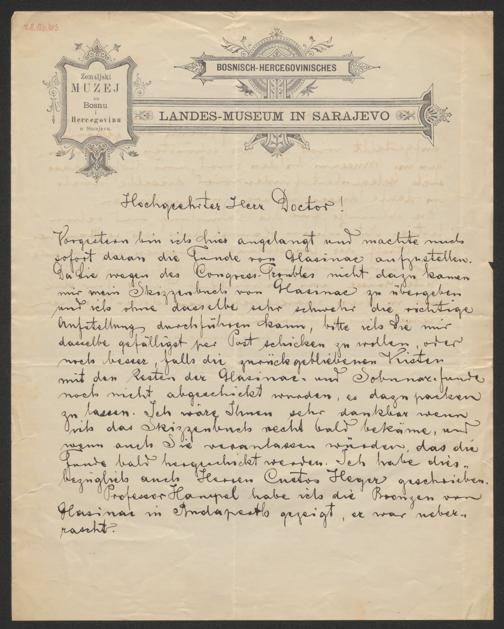 Zemaljski
MUZEJ
za
Bosnu
i
Hercegovinu
u Sarajevu.
BOSNISCH-HERCEGOVINISCHES
LANDES-MUSEUM IN SARAJEVO
Hochgeehrter Herr Doctor!
Vorgestern bin ich hier angelangt und machte mich
sofort daran die Funde von Glasinac aufzustellen.
Da Sie wegen des Congress-Troubles nicht dazu kamen
mir mein Skizzenbuch von Glasinac zu übergeben
und ich ohne dasselbe sehr schwehr die richtige
Aufstellung durchführen kann, bitte ich Sie mir
dasselbe gefälligst per Post schicken zu wollen, oder
noch besser, falls die zurückgebliebenen Kisten
mit den Resten der Glasinac- und Sobunar-funde
noch nicht abgeschickt wurden, es dazu packen
zu lassen. Ich wäre Ihnen sehr dankbar wenn
ich das Skizzenbuch recht bald bekäme, und
wenn auch Sie veranlassen würden, das die
Funde bald hergeschickt werden. Ich habe dies-
bezüglich auch Herrn Custos Heger geschrieben.
Professor Hampel habe ich die Bronzen von
Glasinac in Budapest gezeigt, er war ueber-
rascht.